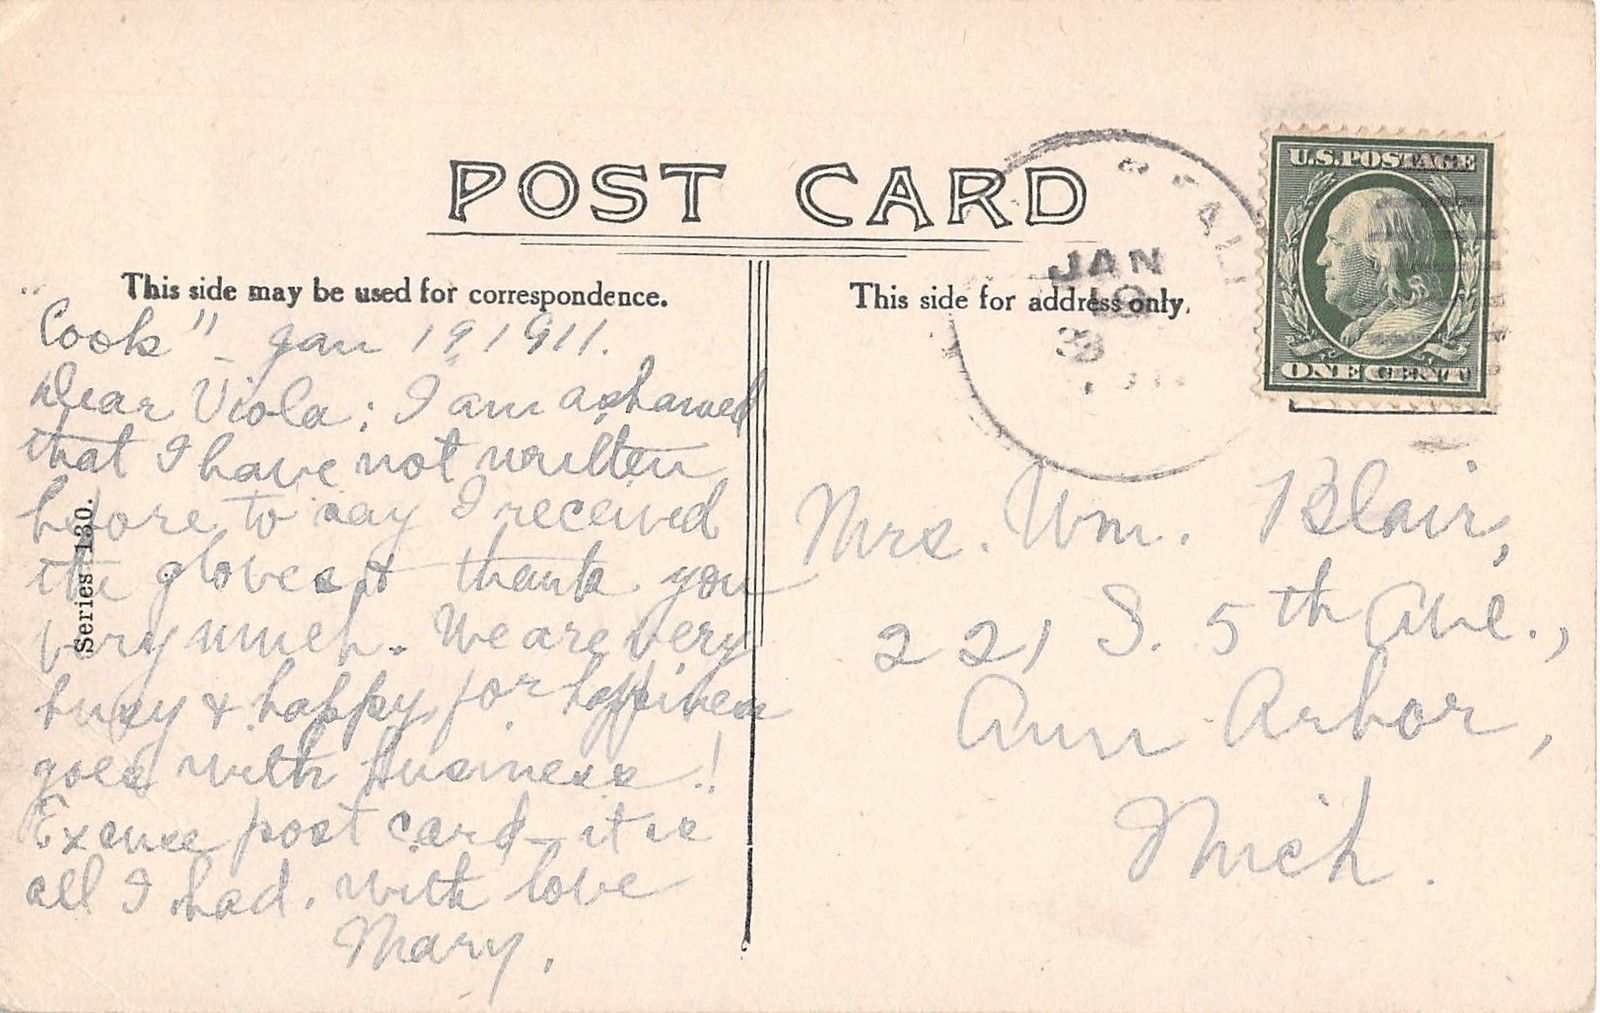 POST CARD
This side may be used for correspondence.
"Cook" - Jan 19, 1911.
Dear Viola; I am ashamed
that I have not written
before to say I received
the gloves & thank you
very much. We are very
busy & happy, for happiness
goes with business!
Excuse post card - it is
all I had. with love
Mary.
Series 130.
This side for address only.
JAN
U.S. POSTAGE
ONE CENT
Mrs. Wm. Blair,
221 S. 5th Ave.,
Ann Arbor,
Mich.